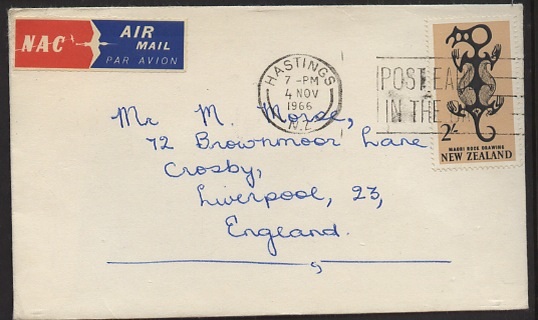 NAC
AIR
MAIL
PAR AVION
HASTINGS
7 -PM
4 NOV
1966
N.Z.
POST EA
IN THE
2/-
MAORI ROCK DRAWING
NEW ZEALAND
Mr M. Morse,
72 Brownmoor Lane
Crosby,
Liverpool, 23,
England.